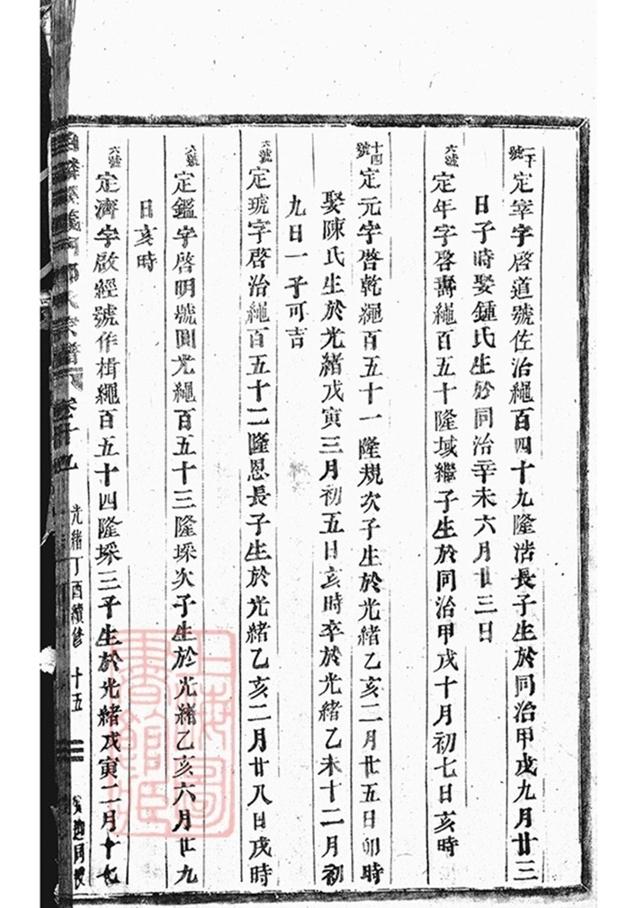 二下號
定宰字啓道號佐治繩百四十九隆浩長子生於同治甲戌九月廿三
日子時娶鍾氏生於同治辛未六月廿三日
六號
定年字啓壽繩百五十隆域繼子生於同治甲戌十月初七日亥時
十四號
定元字啓乾繩百五十一隆規次子生於光緒乙亥二月廿五日卯時
娶陳氏生於光緒戊寅三月初五日亥時卒於光緒乙未十二月初
九日一子可吉
六號
定琥字啓治繩百五十二隆恩長子生於光緒乙亥二月廿八日戌時
六號
定鑑字啓明號圓光繩百五十三隆埰次子生於光緒乙亥六月廿九
日亥時
六號
定濟字啟經號作楫繩百五十四隆埰三子生於光緒戊寅二月十七
宗譜 卷十九 光緒丁酉續修 十五
上海圖書館藏